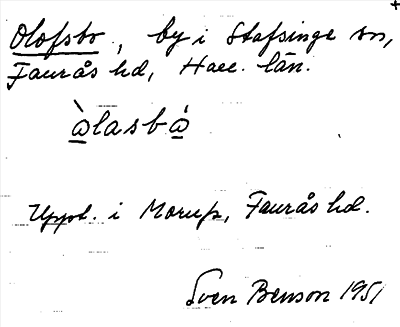 Olofsbo, by i Stafsinge sn,
Faurås hd, Hall. län.
àlasbȧ
Uppt. i Morup, Faurås hd.
Sven Benson 1951